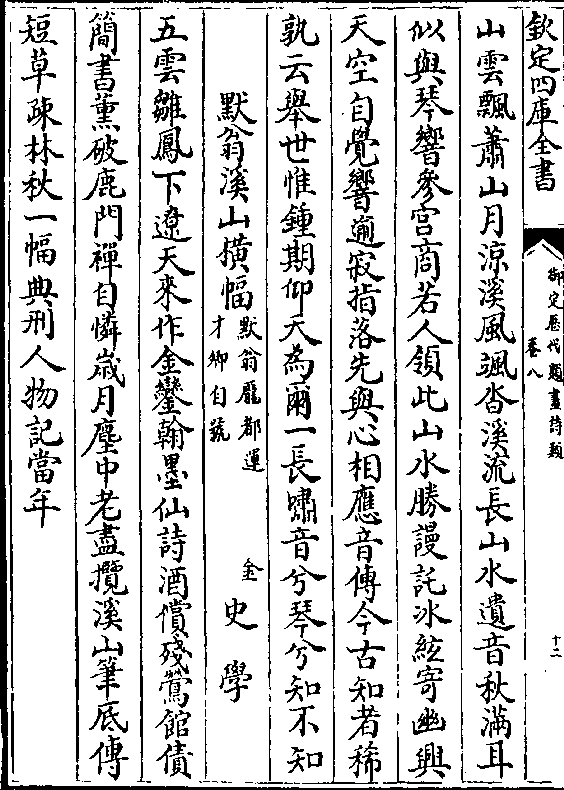 欽定四庫全書
御定歷代題畫詩類
卷八
十二
山雲飄蕭山月涼溪風颯沓溪流長山水遺音秋滿耳
似與琴響參宮商若人領此山水勝謾託冰絃寄幽興
天空自覺響逾寂指落先與心相應音傳今古知者稀
孰云舉世惟鍾期仰天為爾一長嘯音兮琴兮知不知
默翁溪山横幅默翁龎都運才卿自號 金 史學
五雲雛鳳下遼天來作金鑾翰墨仙詩酒償殘鶯館債
簡書薰破鹿門禪自憐歲月塵中老盡攬溪山筆底傳
短草疎林秋一幅典刑人物記當年